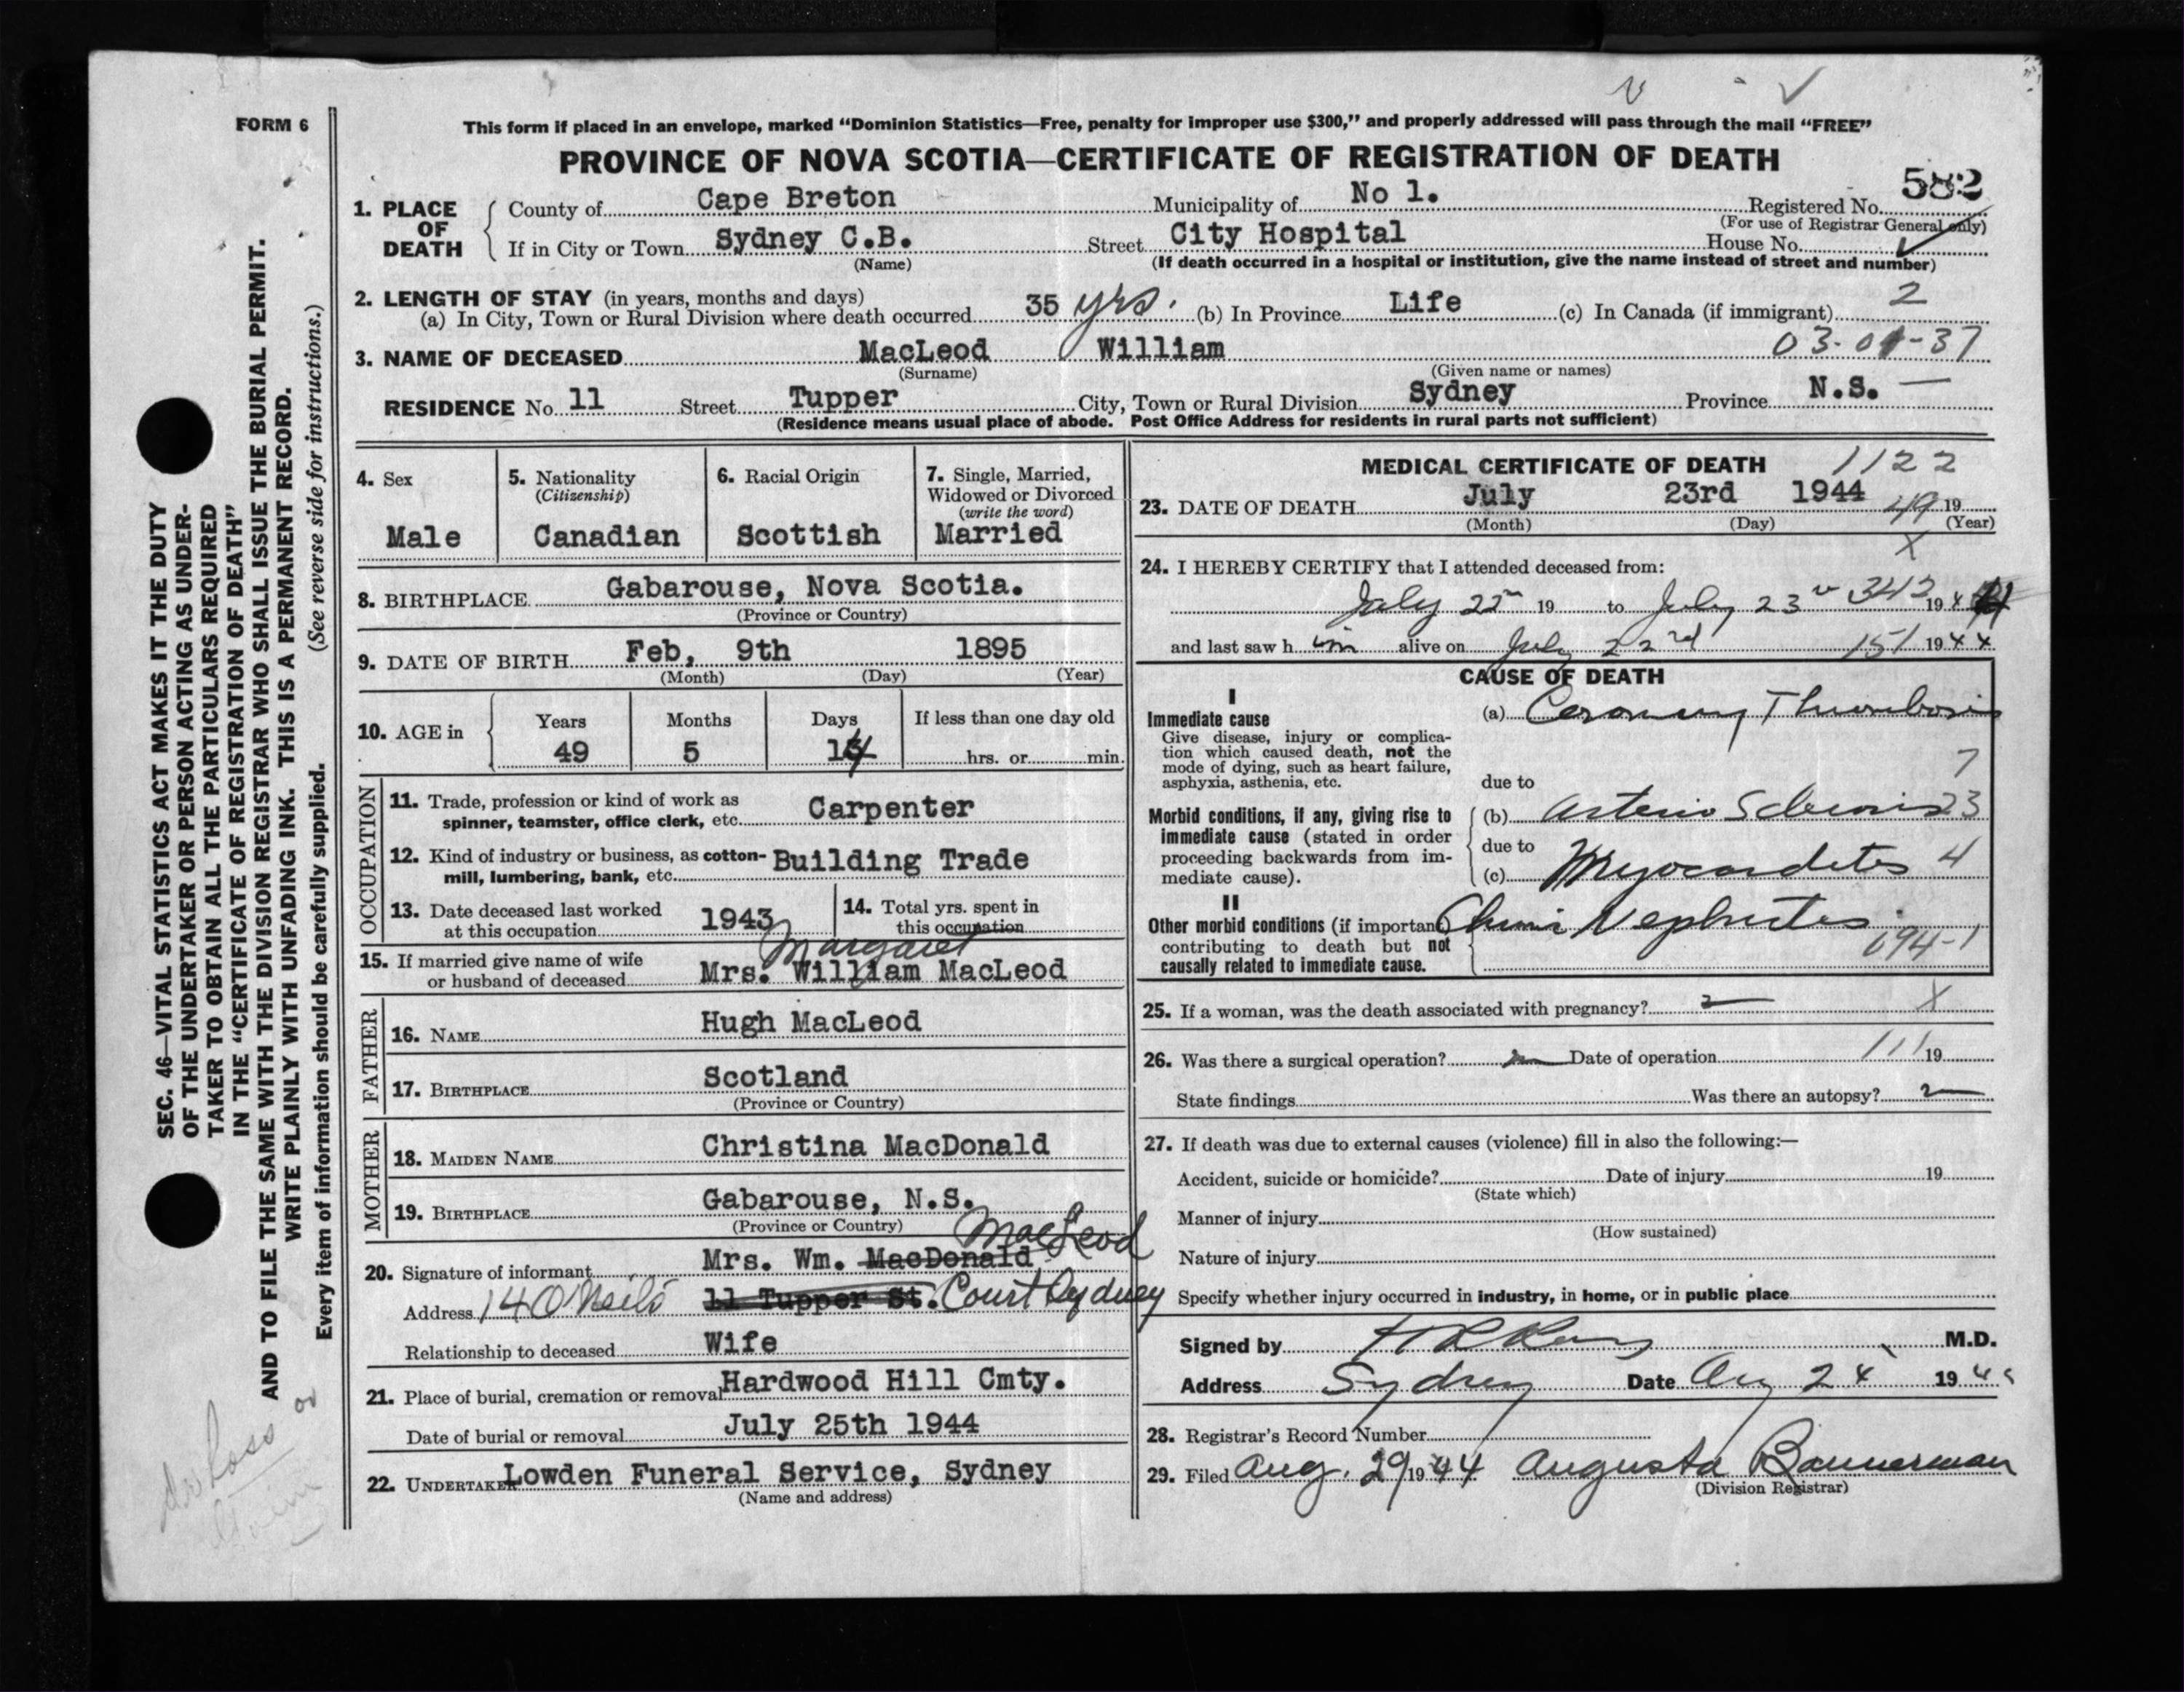 FORM 6
This form if placed in an envelope, marked “Dominion Statistics—Free, penalty for improper use $300,” and properly addressed will pass through the mail “FREE”
PROVINCE OF NOVA SCOTIA—CERTIFICATE OF REGISTRATION OF DEATH
582
1. PLACE OF DEATH County of Cape Breton Municipality of No 1. Registered No.
(For use of Registrar General only)
If in City or Town Sydney C.B. Street City Hospital House No.
(Name) (If death occurred in a hospital or institution, give the name instead of street and number)
2. LENGTH OF STAY (in years, months and days)
(a) In City, Town or Rural Division where death occurred 35 yrs. (b) In Province Life (c) In Canada (if immigrant) 2
3. NAME OF DECEASED MacLeod William 03-01-37
(Surname) (Given name or names)
RESIDENCE No. 11 Street Tupper City, Town or Rural Division Sydney Province N.S.
(Residence means usual place of abode. Post Office Address for residents in rural parts not sufficient)
4. Sex Male
5. Nationality (Citizenship) Canadian
6. Racial Origin Scottish
7. Single, Married, Widowed or Divorced (write the word) Married
8. BIRTHPLACE Gabarouse, Nova Scotia.
(Province or Country)
9. DATE OF BIRTH Feb, 9th 1895
(Month) (Day) (Year)
10. AGE in Years 49 Months 5 Days 14 If less than one day old hrs. or min.
OCCUPATION
11. Trade, profession or kind of work as spinner, teamster, office clerk, etc. Carpenter
12. Kind of industry or business, as cotton-mill, lumbering, bank, etc. Building Trade
13. Date deceased last worked at this occupation 1943
14. Total yrs. spent in this occupation
15. If married give name of wife or husband of deceased Mrs. William MacLeod
Margaret
FATHER
16. NAME Hugh MacLeod
17. BIRTHPLACE Scotland
(Province or Country)
MOTHER
18. MAIDEN NAME Christina MacDonald
19. BIRTHPLACE Gabarouse, N.S.
(Province or Country)
20. Signature of informant Mrs. Wm. MacDonald MacLeod
Address 14 O'Neils 11 Tupper St. Court Sydney
Relationship to deceased Wife
21. Place of burial, cremation or removal Hardwood Hill Cmty.
Date of burial or removal July 25th 1944
22. UNDERTAKER Lowden Funeral Service, Sydney
(Name and address)
MEDICAL CERTIFICATE OF DEATH 1122
23. DATE OF DEATH July 23rd 1944 49 19
(Month) (Day) (Year)
X
24. I HEREBY CERTIFY that I attended deceased from:
July 22 19 to July 23 342 1944
and last saw h im alive on July 22nd 151 1944
CAUSE OF DEATH
I
Immediate cause
Give disease, injury or complication which caused death, not the mode of dying, such as heart failure, asphyxia, asthenia, etc.
(a) Coronary Thrombosis
7
due to
Morbid conditions, if any, giving rise to immediate cause (stated in order proceeding backwards from immediate cause).
(b) Arterio Sclerosis 23
due to
(c) Myocarditis 4
II
Other morbid conditions (if important) contributing to death but not causally related to immediate cause.
Chronic Nephritis
094-1
25. If a woman, was the death associated with pregnancy? X
26. Was there a surgical operation? no Date of operation 111 19
State findings Was there an autopsy?
27. If death was due to external causes (violence) fill in also the following:—
Accident, suicide or homicide? Date of injury 19
(State which)
Manner of injury
(How sustained)
Nature of injury
Specify whether injury occurred in industry, in home, or in public place
Signed by M.D.
Address Sydney Date Aug 24 1944
28. Registrar's Record Number
29. Filed Aug. 29 1944 Augusta Bannerman
(Division Registrar)
SEC. 46—VITAL STATISTICS ACT MAKES IT THE DUTY
OF THE UNDERTAKER OR PERSON ACTING AS UNDER-
TAKER TO OBTAIN ALL THE PARTICULARS REQUIRED
IN THE “CERTIFICATE OF REGISTRATION OF DEATH”
AND TO FILE THE SAME WITH THE DIVISION REGISTRAR WHO SHALL ISSUE THE BURIAL PERMIT.
WRITE PLAINLY WITH UNFADING INK. THIS IS A PERMANENT RECORD.
Every item of information should be carefully supplied. (See reverse side for instructions.)